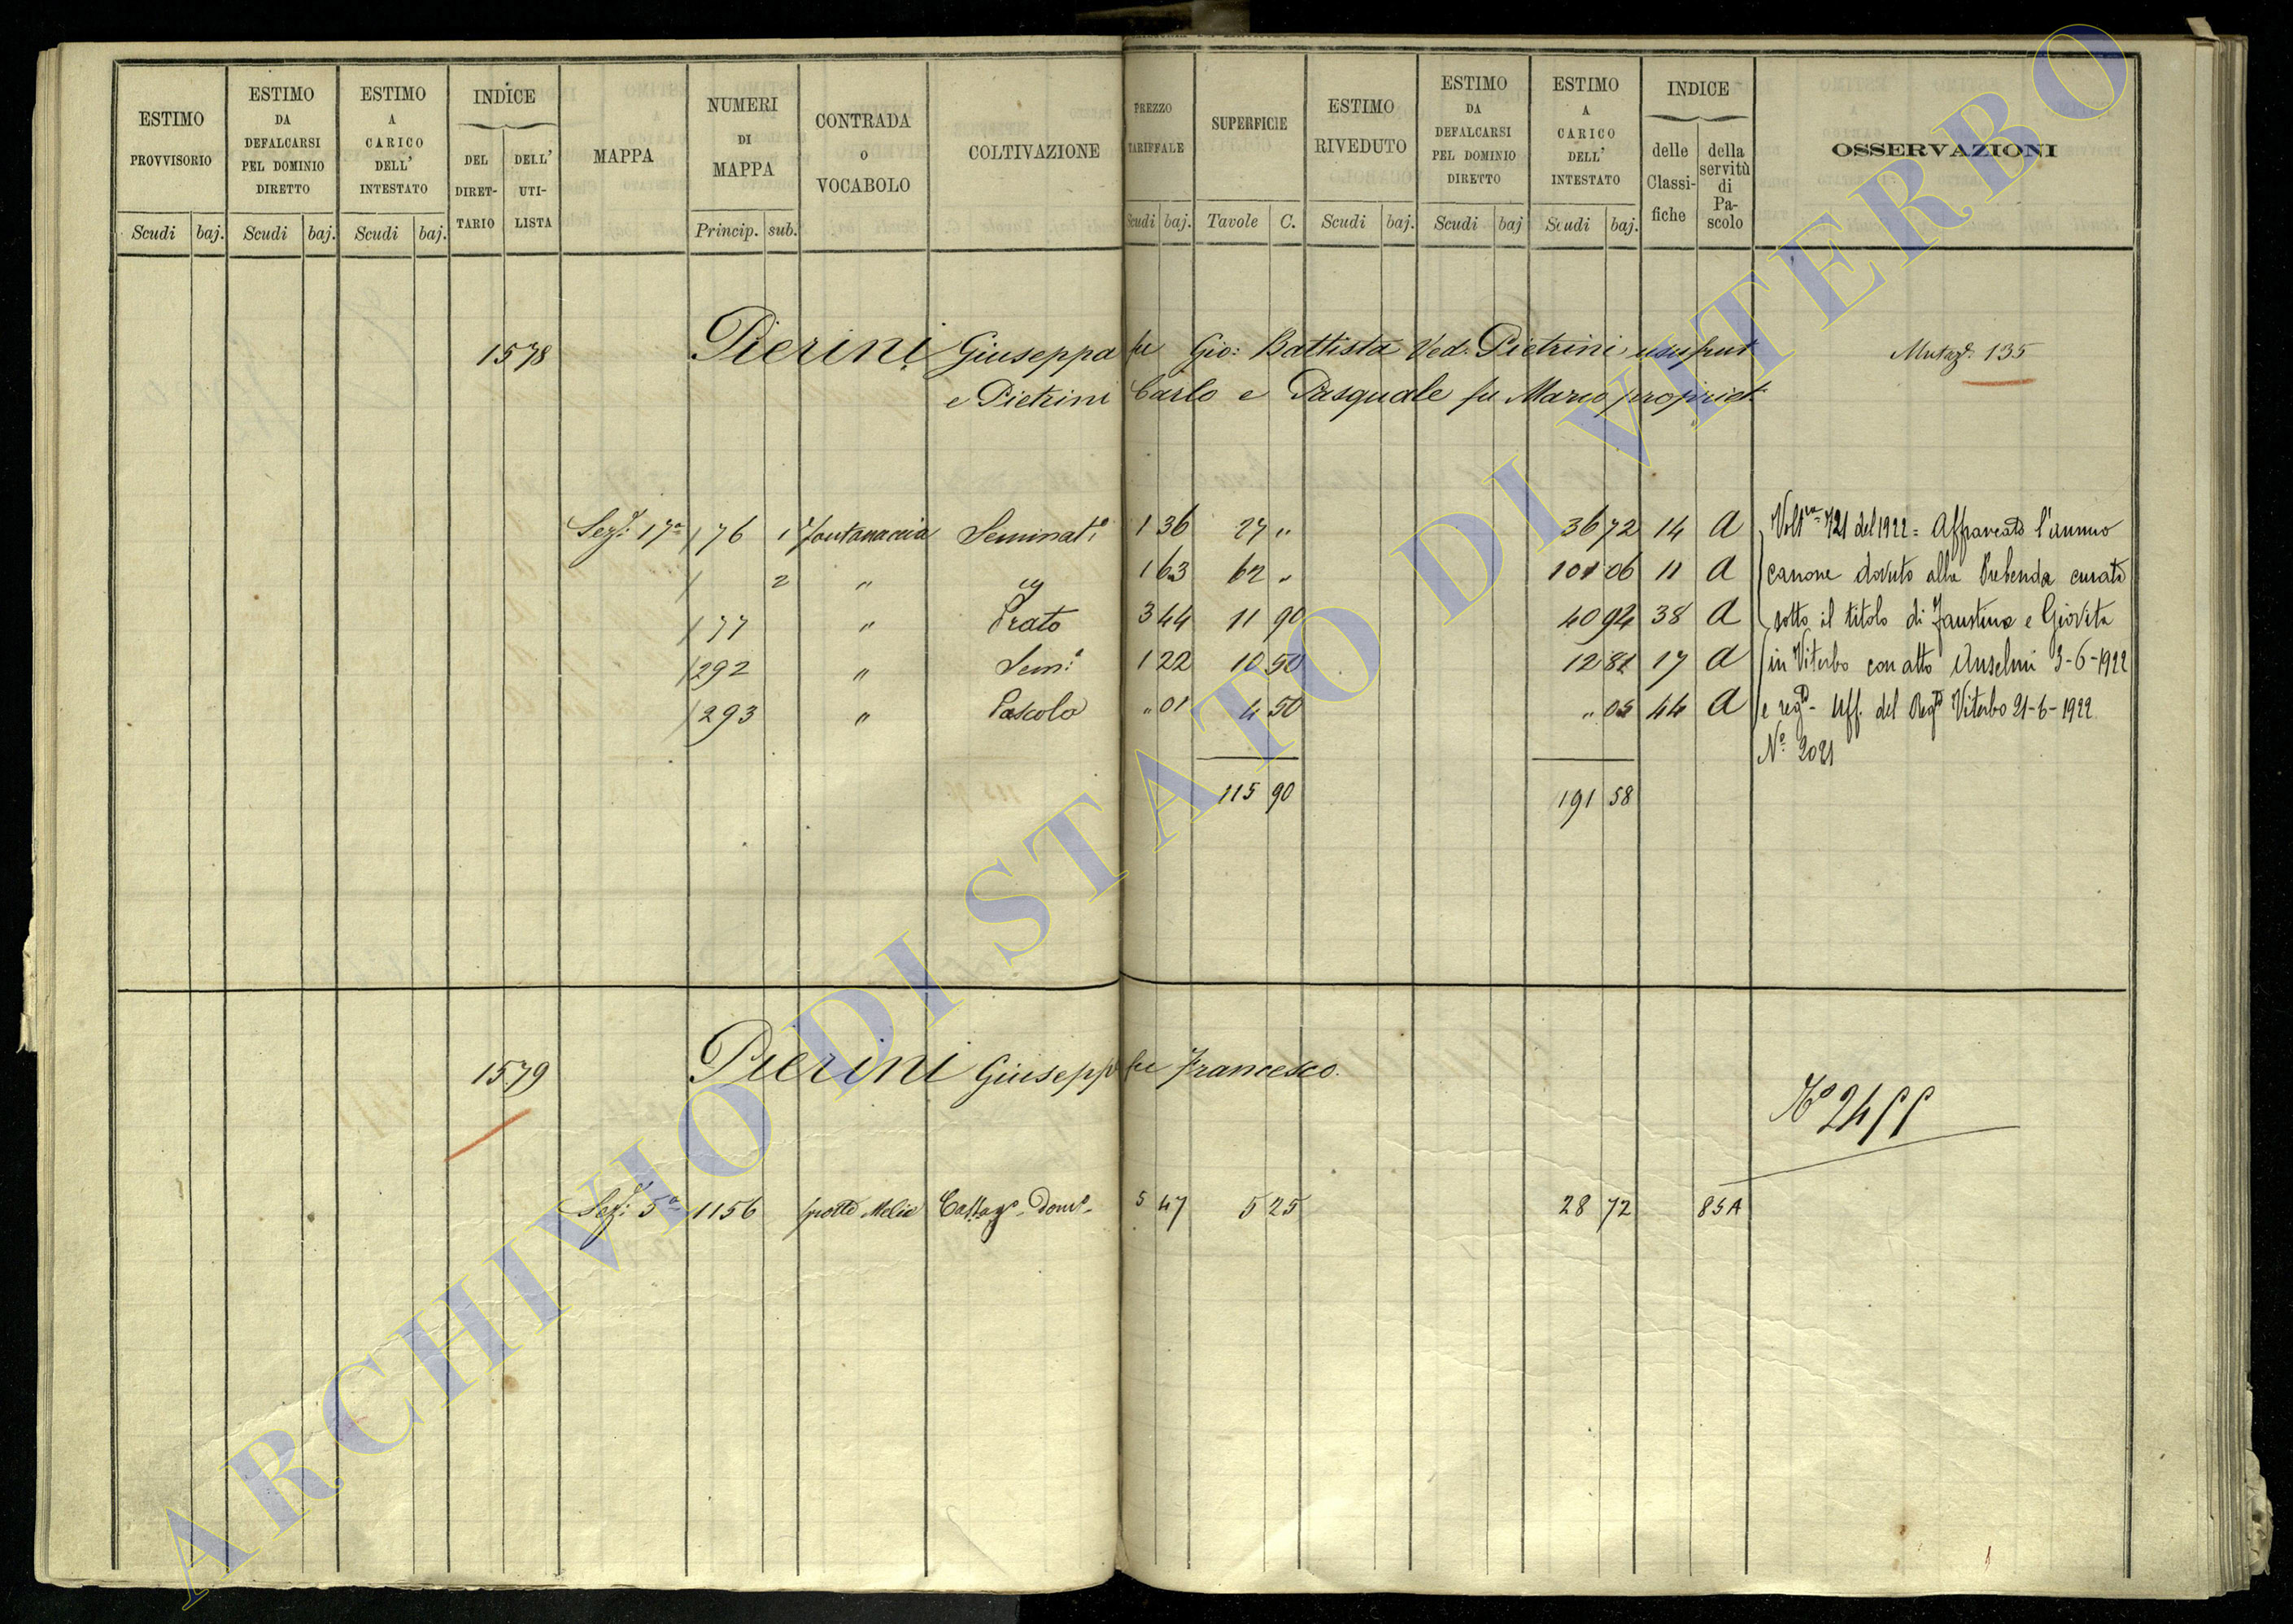 ESTIMO PROVVISORIO
Scudi baj.
ESTIMO DA DEFALCARSI PEL DOMINIO DIRETTO
Scudi baj.
ESTIMO A CARICO DELL' INTESTATO
Scudi baj.
INDICE
DEL DIRET-TARIO
DELL' UTI-LISTA
MAPPA
NUMERI DI MAPPA
Princip. sub.
CONTRADA O VOCABOLO
COLTIVAZIONE
PREZZO TARIFFALE
Scudi baj.
SUPERFICIE
Tavole C.
ESTIMO RIVEDUTO
Scudi baj.
ESTIMO DA DEFALCARSI PEL DOMINIO DIRETTO
Scudi baj
ESTIMO A CARICO DELL' INTESTATO
Scudi baj.
INDICE
delle Classi-fiche
della servitù di Pa-scolo
OSSERVAZIONI
1578 Pierini Giuseppa fu Gio: Battista Ved. Pietrini usufrut Mutaz. 135
e Pietrini Carlo e Pasquale fu Marco propriet.
Sez. 17a 176 1 Fontanaccia Seminato 1 36 27 " 36 72 14 A Voltra 721 del 1922 = Affrancato l'annuo
2 " " 1 63 62 " 101 06 11 A canone dovuto alla Prebenda curata
177 " Prato 3 44 11 90 40 94 38 A sotto il titolo di Faustino e Giovita
292 " Sem. 1 22 10 50 12 81 17 A in Viterbo con atto Anselmi 3-6-1922
293 " Pascolo " 01 4 50 " 05 44 A e reg. Uff. del Reg. Viterbo 21-6-1922
No 2021
115 90 191 58
1579 Pierini Giuseppe fu Francesco.
No 2455
Sez. 5a 1156 5 47 5 25 28 72 85A
ARCHIVIO DI STATO DI VITERBO